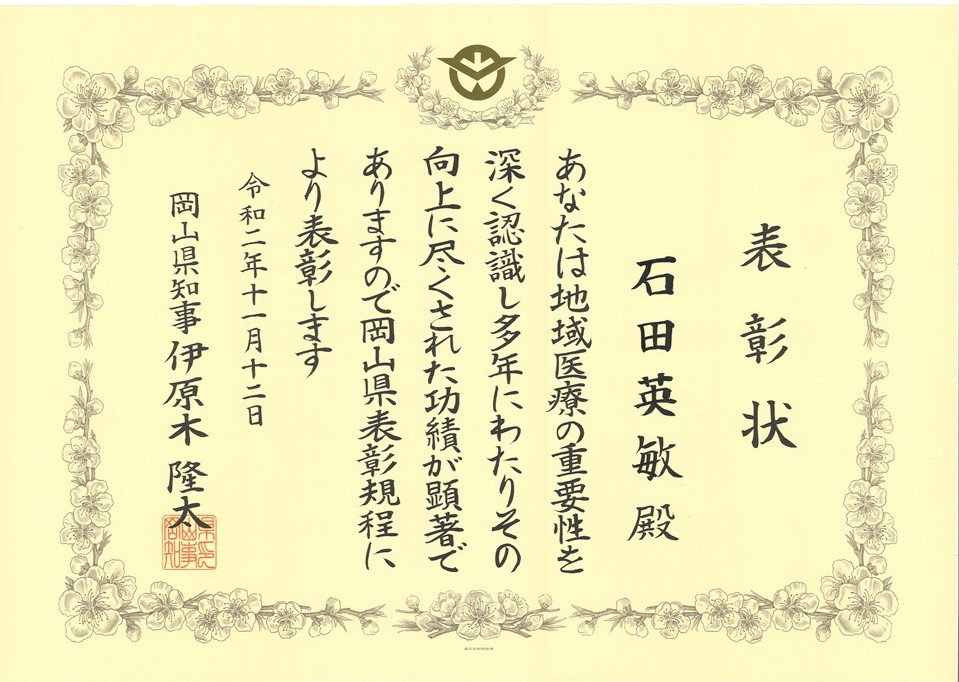 表彰状
石田英敏 殿
あなたは地域医療の重要性を
深く認識し多年にわたりその
向上に尽くされた功績が顕著で
ありますので岡山県表彰規程に
より表彰します
令和二年十一月十二日
岡山県知事 伊原木 隆太